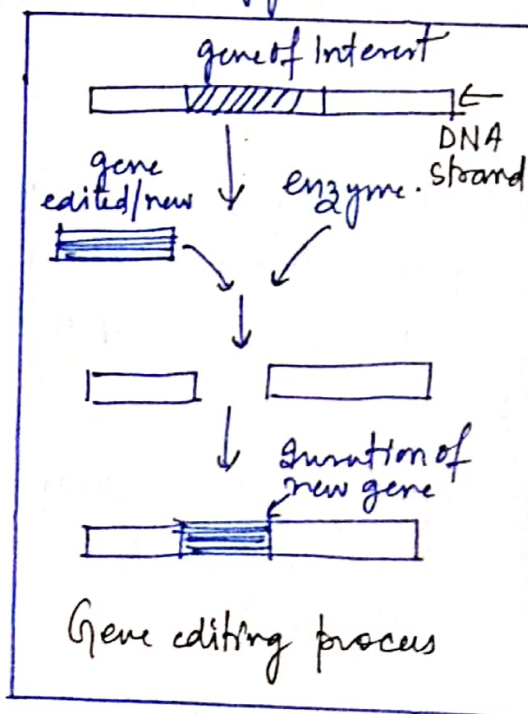 gene of Interest
DNA
strand
gene
edited/new
enzyme.
Insertion of
new gene
Gene editing process